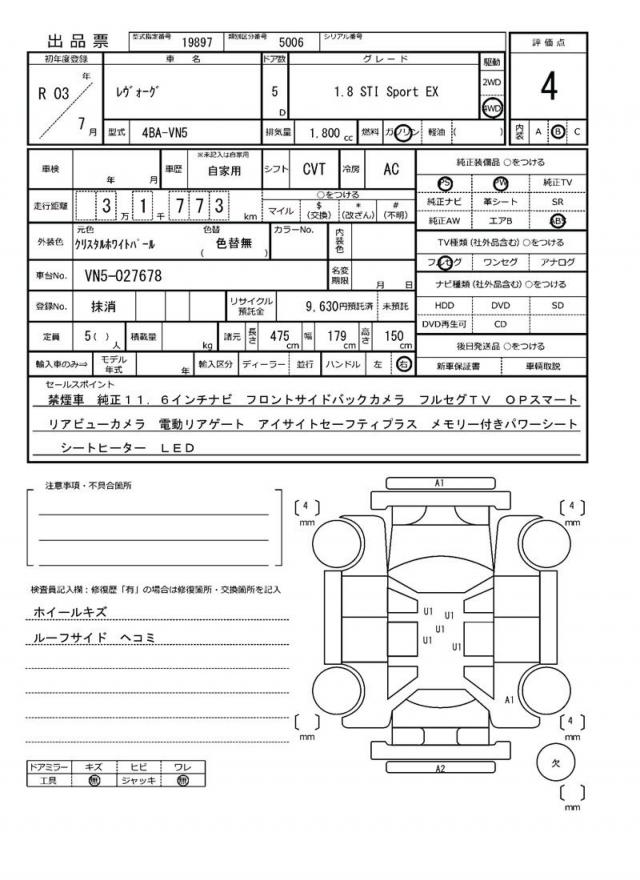 出品票 型式指定番号 19897 類別区分番号 5006 シリアル番号
評価点
4
初年度登録 車名 ドア数 グレード 駆動
R 03 年 7 月 ﾚｳﾞｫｰｸﾞ 5 D 1.8 STI Sport EX 2WD 4WD
型式 4BA-VN5 排気量 1,800 cc 燃料 ガソリン 軽油 ( ) 内装 A B C
車検 年 月 車歴 ※未記入は自家用 自家用 シフト CVT 冷房 AC
走行距離 3 万 1 千 7 7 3 km ○をつける マイル $(交換) *(改ざん) #(不明)
外装色 元色 ｸﾘｽﾀﾙﾎﾜｲﾄﾊﾟｰﾙ 色替 ( 色替無 ) カラーNo. 内装色
車台No. VN5-027678 名変期限 月 日
登録No. 抹消 リサイクル預託金 9,630円預託済 未預託
定員 5( ) 人 積載量 kg 諸元 長さ 475 cm 幅 179 cm 高さ 150 cm
輸入車のみ⇒ モデル年式 年 輸入区分 ディーラー 並行 ハンドル 左 右
純正装備品 ○をつける
PS PW 純正TV
純正ナビ 革シート SR
純正AW エアB ABS
TV種類 (社外品含む) ○をつける
フルセグ ワンセグ アナログ
ナビ種類 (社外品含む) ○をつける
HDD DVD SD
DVD再生可 CD
後日発送品 ○をつける
新車保証書 車輌取説
セールスポイント
禁煙車 純正11．6インチナビ フロントサイドバックカメラ フルセグTV OPスマート
リアビューカメラ 電動リアゲート アイサイトセーフティプラス メモリー付きパワーシート
シートヒーター LED
注意事項・不具合箇所
検査員記入欄：修復歴「有」の場合は修復箇所・交換箇所を記入
ホイールキズ
ルーフサイド ヘコミ
ドアミラー キズ ヒビ ワレ
工具 無 ジャッキ 無
A1
4 mm
4 mm
U1 U1
U1
U1 U1
A1
mm
4 mm
A2
欠
mm